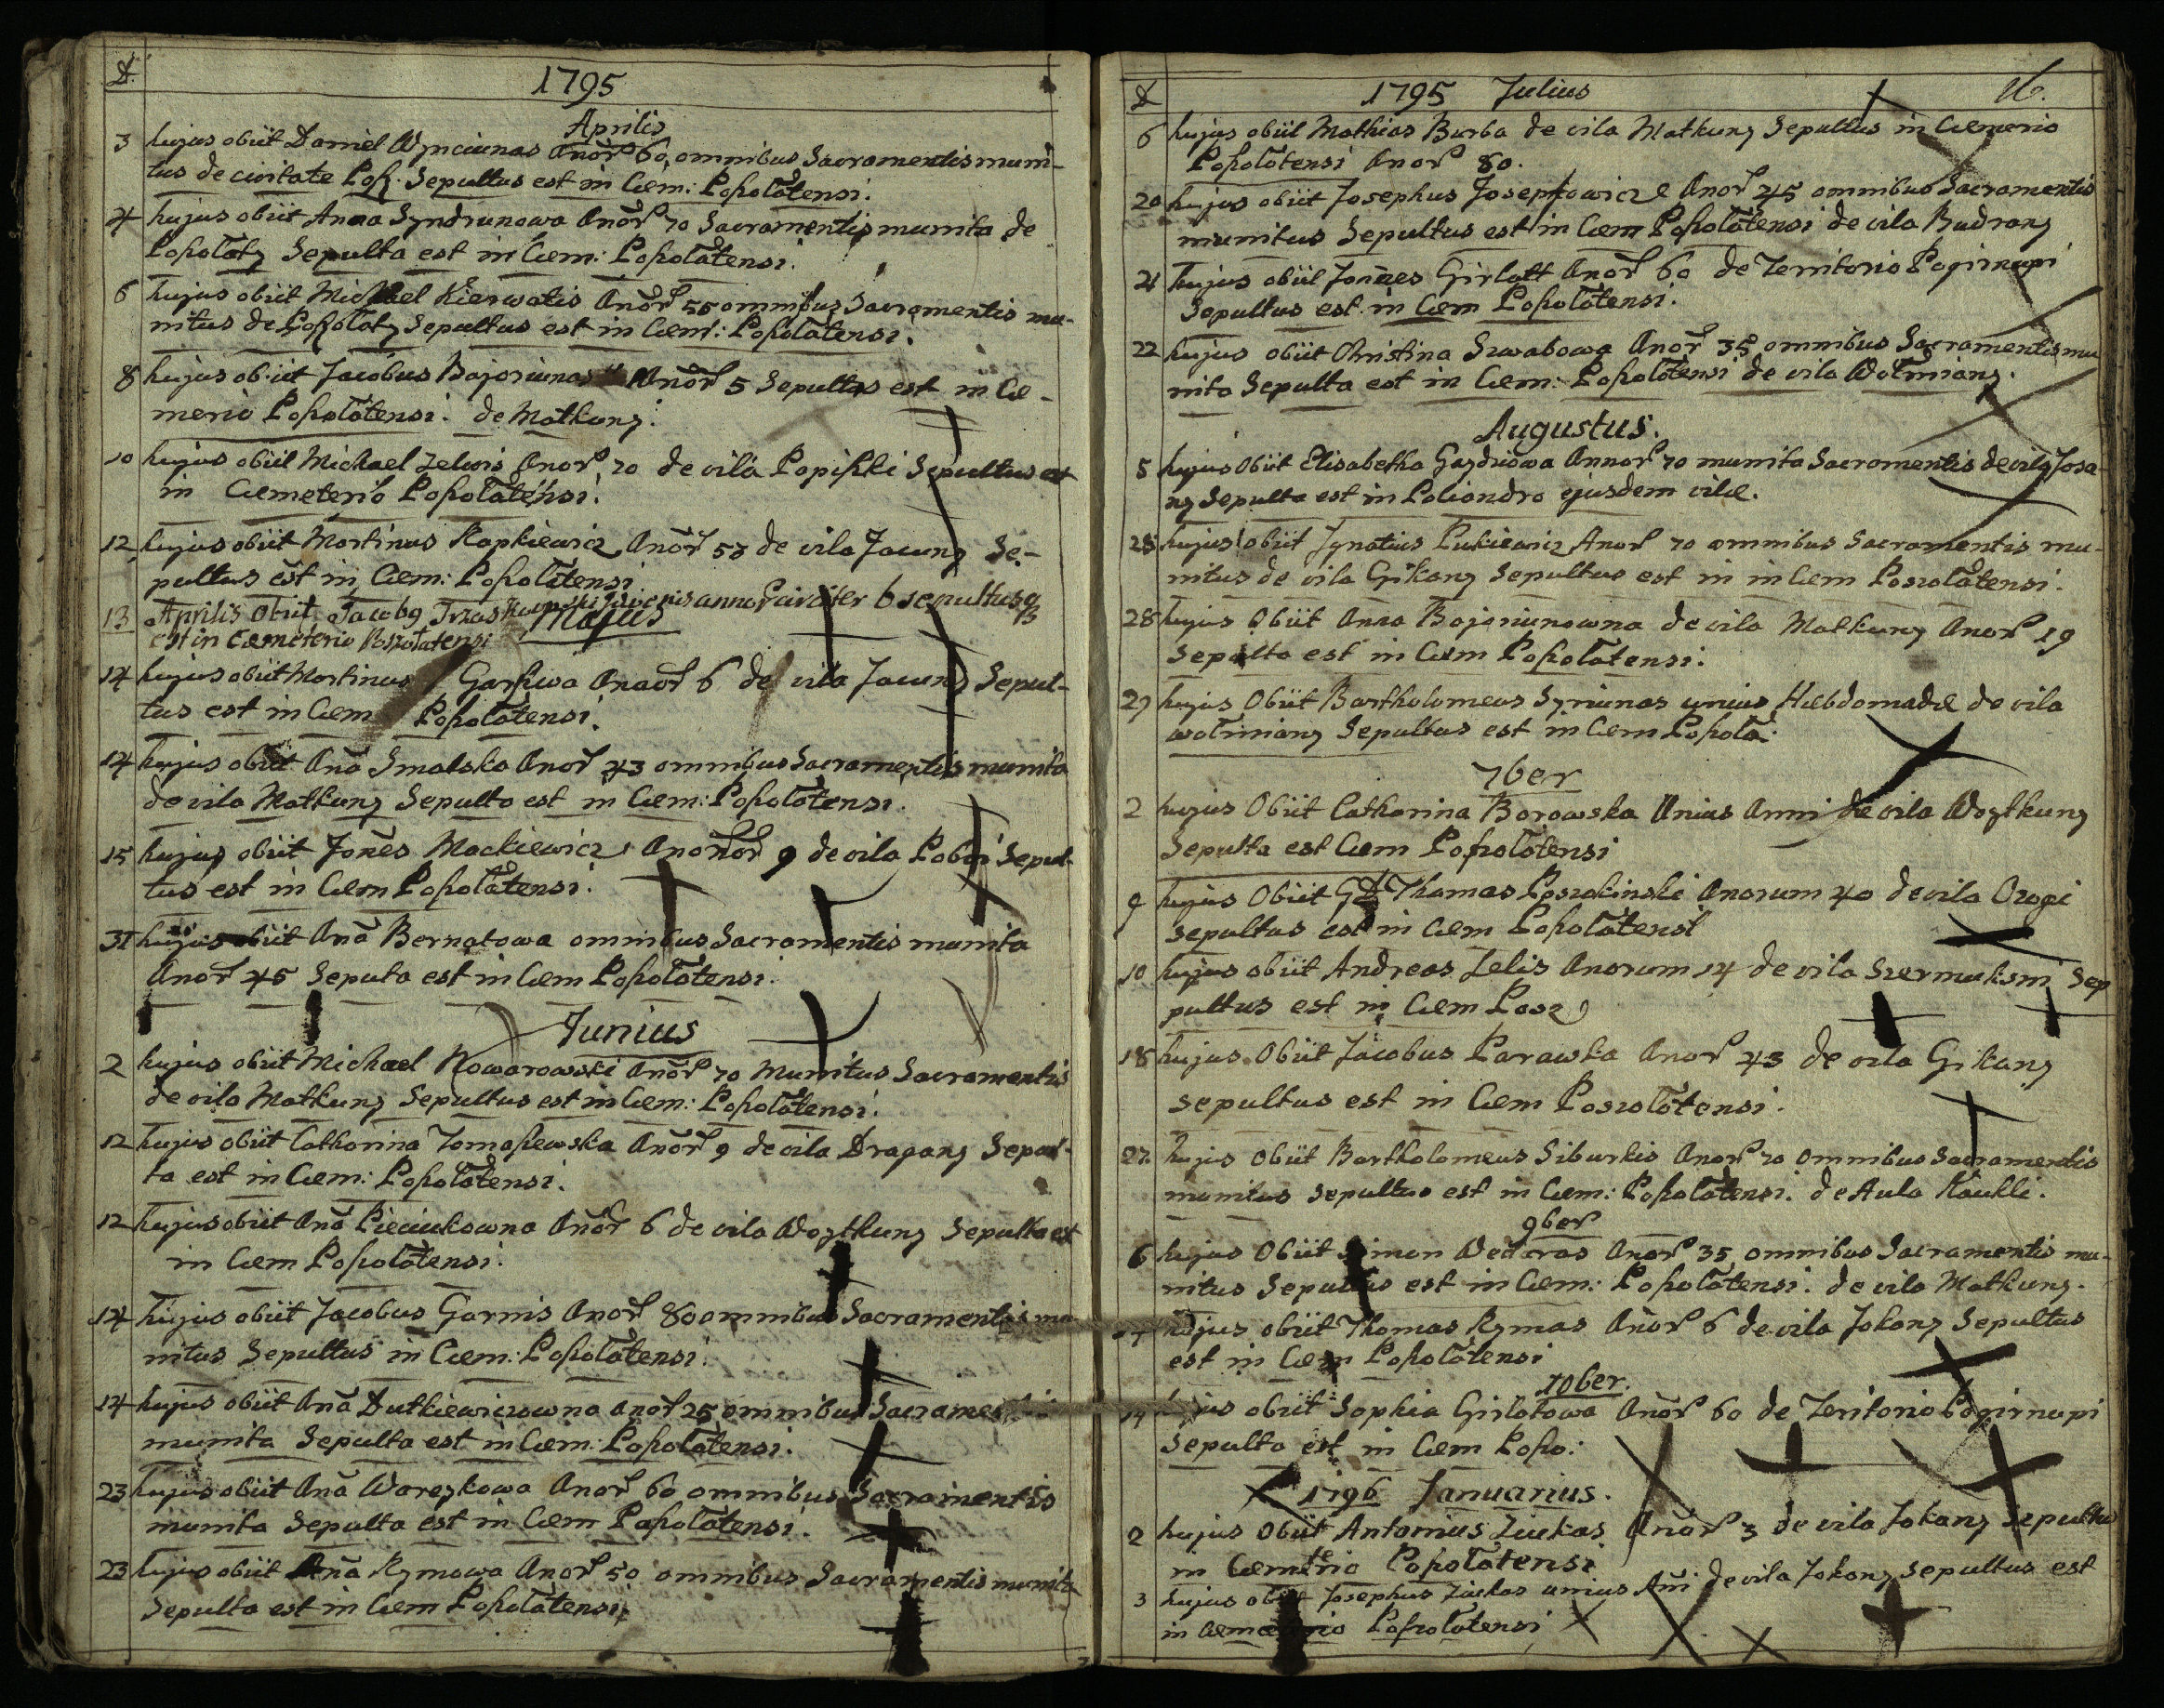 D.
1795
Aprilis
3 hujus obiit Daniel Wynciunas Anor 60 omnibus Sacramentis muni-
tus de civitate Poß. Sepultus est in Cæm: Poßolatensi.
4 hujus obiit Anna Syndrunowa Anor 70 Sacramentis munita de
Poßolaty Sepulta est in Cæm: Poßolatensi.
6 hujus obiit Michael Kierwatis Anor 55 omnibus Sacramentis mu-
nitus de Poßolaty Sepultus est in Cæm: Poßolatensi.
8 hujus obiit Jacobus Bajoriunas Anor 5 Sepultus est in Cæ-
merio Poßolatensi. de Matkuny.
10 hujus obiit Michael Zelwis Anor 70 de vila Popißki Sepultus est
in Cæmeterio Poßolatensi.
12 hujus obiit Martinus Rapkiewicz Anor 53 de vila Jacuny Se-
pultus est in Cæm: Poßolatensi
13 Aprilis Obiit Jacob9 annor circiter 6 sepultus
est in Cæmeterio Poszolatensi
Majus
14 hujus obiit Martinus Garßwa Anaor 6 de vila Jacuny Sepul-
tus est in Cæm Poßolatensi.
14 hujus obiit Ana Smalska Anor 43 omnibus Sacramentis munita
de vila Matkuny Sepulta est in Cæm: Poßolatensi.
15 hujus obiit Jones Mackiewicz Anoror 9 de vila Pobori Sepul-
tus est in Cæm Poßolatensi.
31 hujus obiit Ana Bernatowa omnibus Sacramentis munita
Anor 45 Sepulta est in Cæm Poßolatensi.
Junius
2 hujus obiit Michael Nowarowski Anor 70 Munitus Sacramentis
de vila Matkuny Sepultus est in Cæm: Poßolatensi.
12 hujus obiit Catharina Tomaßewska Anor 9 de vila Dragany Sepul-
ta est in Cæm: Poßolatensi.
12 hujus obiit Ana Pieciukowna Anor 6 de vila Woytkuny Sepulta est
in Cæm Poßolatensi.
14 hujus obiit Jacobus Garnis Anor 80 omnibus Sacramentis mu-
nitus Sepultus in Cæm: Poßolatensi.
14 hujus obiit Ana Dutkiewiczowna Anor 25 omnibus
munita Sepulta est in Cæm: Poßolatensi.
23 hujus obiit Ana Wareykowa Anor 60 omnibus Sacramentis
munita Sepulta est in Cæm Poßolatensi.
23 hujus obiit Ana Rymowa Anor 50 omnibus Sacramentis munita
Sepulta est in Cæm Poßolatensi.
D
1795 Julius
16.
6 hujus obiit Mathias Burba de vila Matkuny Sepultus in Cæmerio
Poßolatensi Anor 80.
20 hujus obiit Josephus Josephowicz Anor 45 omnibus Sacramentis
munitus Sepultus est in Cæm Poßolatensi de vila Budrany
21 hujus obiit Jonaes Girlatt Anor 60 de Territorio Pogirnupi
Sepultus est in Cæm Poßolatensi.
22 hujus obiit Christina Szwabowa Anor 35 omnibus Sacramentis mu
nita Sepulta est in Cæm: Poßolatensi de vila Wotmiany.
Augustus.
5 hujus Obiit Elisabetha Gaydziowa Annor 70 munita Sacramentis de vila Josa-
ny Sepulta est in Poliandro ejusdem vilæ.
28 hujus obiit Jgnatius Pukiewicz Anor 70 omnibus Sacramentis mu-
nitus de vila Gikany Sepultus est in in Cæm Poszolatensi.
28 hujus Obiit Anna Bajoriunowna de vila Matkuny Anor 19
Sepulta est in Cæm Poßolatensi.
29 hujus Obiit Bartholomeus Syriunas unius Hæbdomadæ de vila
wotmiany Sepultus est in Cæm Poßola:
7ber
2 hujus Obiit Catharina Borowska Unius Anni de vila Woytkuny
Sepulta est Cæm Poßolatensi
9 hujus Obiit GD Thomas Poszakinski Anorum 40 de vila Ozogi
sepultus est in Cæm Poßolatensi
10 hujus obiit Andreas Zelis Anorum 14 de vila Szermuksni Sep
pultus est in Cæm Posz
18 hujus Obiit Jacobus Parawka Anor 43 de vila Gikany
sepultus est in Cæm Poszolatensi.
27. hujus Obiit Bartholomeus Siburkis Anor 70 Omnibus Sacramentis
munitus sepultus est in Cæm: Poßolatensi. de Aula Kaukli.
9ber
6 hujus Obiit Simon Wedaras Anor 35 omnibus Sacramentis mu-
nitus Sepultus est in Cæm: Poßolatensi. de vila Matkuny.
hujus obiit Thomas Rymas Anor 6 de vila Jokany Sepultus
est in Cæm Poßolatensi
10ber.
14 hujus obiit Sophia Girlotowa Anor 60 de Teritorio Pogirnupi
Sepulta est in Cæm Poßo:
1796 Januarius.
2 hujus Obiit Antonius Ziukas Anor 3 de vila Jokany Sepultus
in Cæmterio Poßolatensi
3 hujus obiit Josephus Ziukas unius Ani de vila Jokany sepultus est
in Poßolatensi